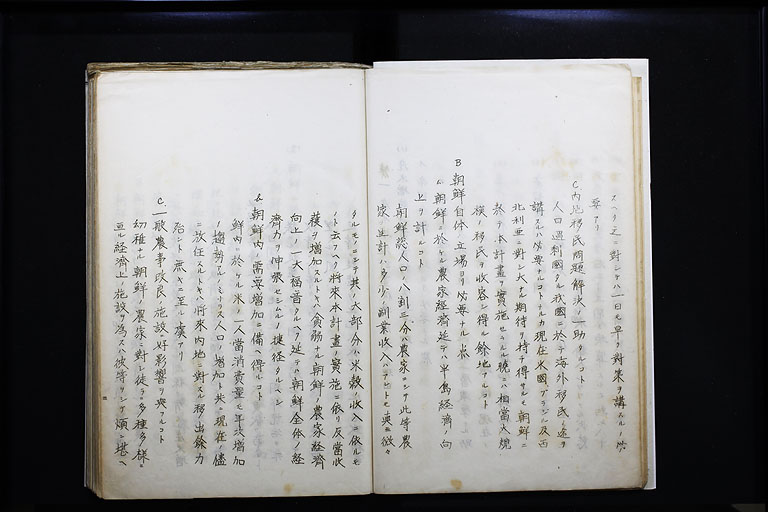 スヘク之ニ對シテハ一日モ早ク對策ヲ講スルノ必
要アリ
C 内地移民問題解決ノ一助タルコト
人口過剰國タル我國ニ於テ海外移民ノ途ヲ
講スルハ必要ナルコトナルカ現在米國ブラジル及西
北利亜ニ對シ大ナル期待ヲ持チ得サルモ朝鮮ニ
於テ本計畫ヲ實施セラルル暁ニハ相當大規
模ノ移民ヲ收容シ得ル餘地アルコト
B 朝鮮自体ノ立場ヨリ必要ナル点
a. 朝鮮ニ於ケル農家經濟延テハ半島經濟ノ向
上ヲ計ルコト
朝鮮総人口ノ八割三分ハ農家ニシテ此等農
家ノ生計ハ多少ノ副業收入ハアレトモ其ハ微々
タルモノニシテ其ノ大部分ハ米穀ノ收入ニ依ルモ
ノト云フヘク將來本計畫ノ實施ニ依リ反當收
穫ヲ増加スルトキハ貧弱ナル朝鮮ノ農家經濟
向上ノ一大福音タルヘク延テハ朝鮮全体ノ經
濟力ヲ伸張セシムルノ捷径タルヘシ
b. 朝鮮内ノ需要増加ニ備ヘ得ルコト
鮮内ニ於ケル米ノ一人當消費量モ年次増加
ノ趨勢ニアルノミナラス人口ノ増加ト共ニ現在ノ儘
ニ放任スルトキハ將來内地ニ對スル移出餘力
殆ント無キニ至ル虞アリ
C. 一般農事改良ノ施設ニ好影響ヲ與フルコト
幼稚ナル朝鮮ノ農家ニ對シ徒ラニ多種多様ニ
亘ル經濟上ノ施設ヲ為スハ彼等ヲシテ煩ニ堪ヘ